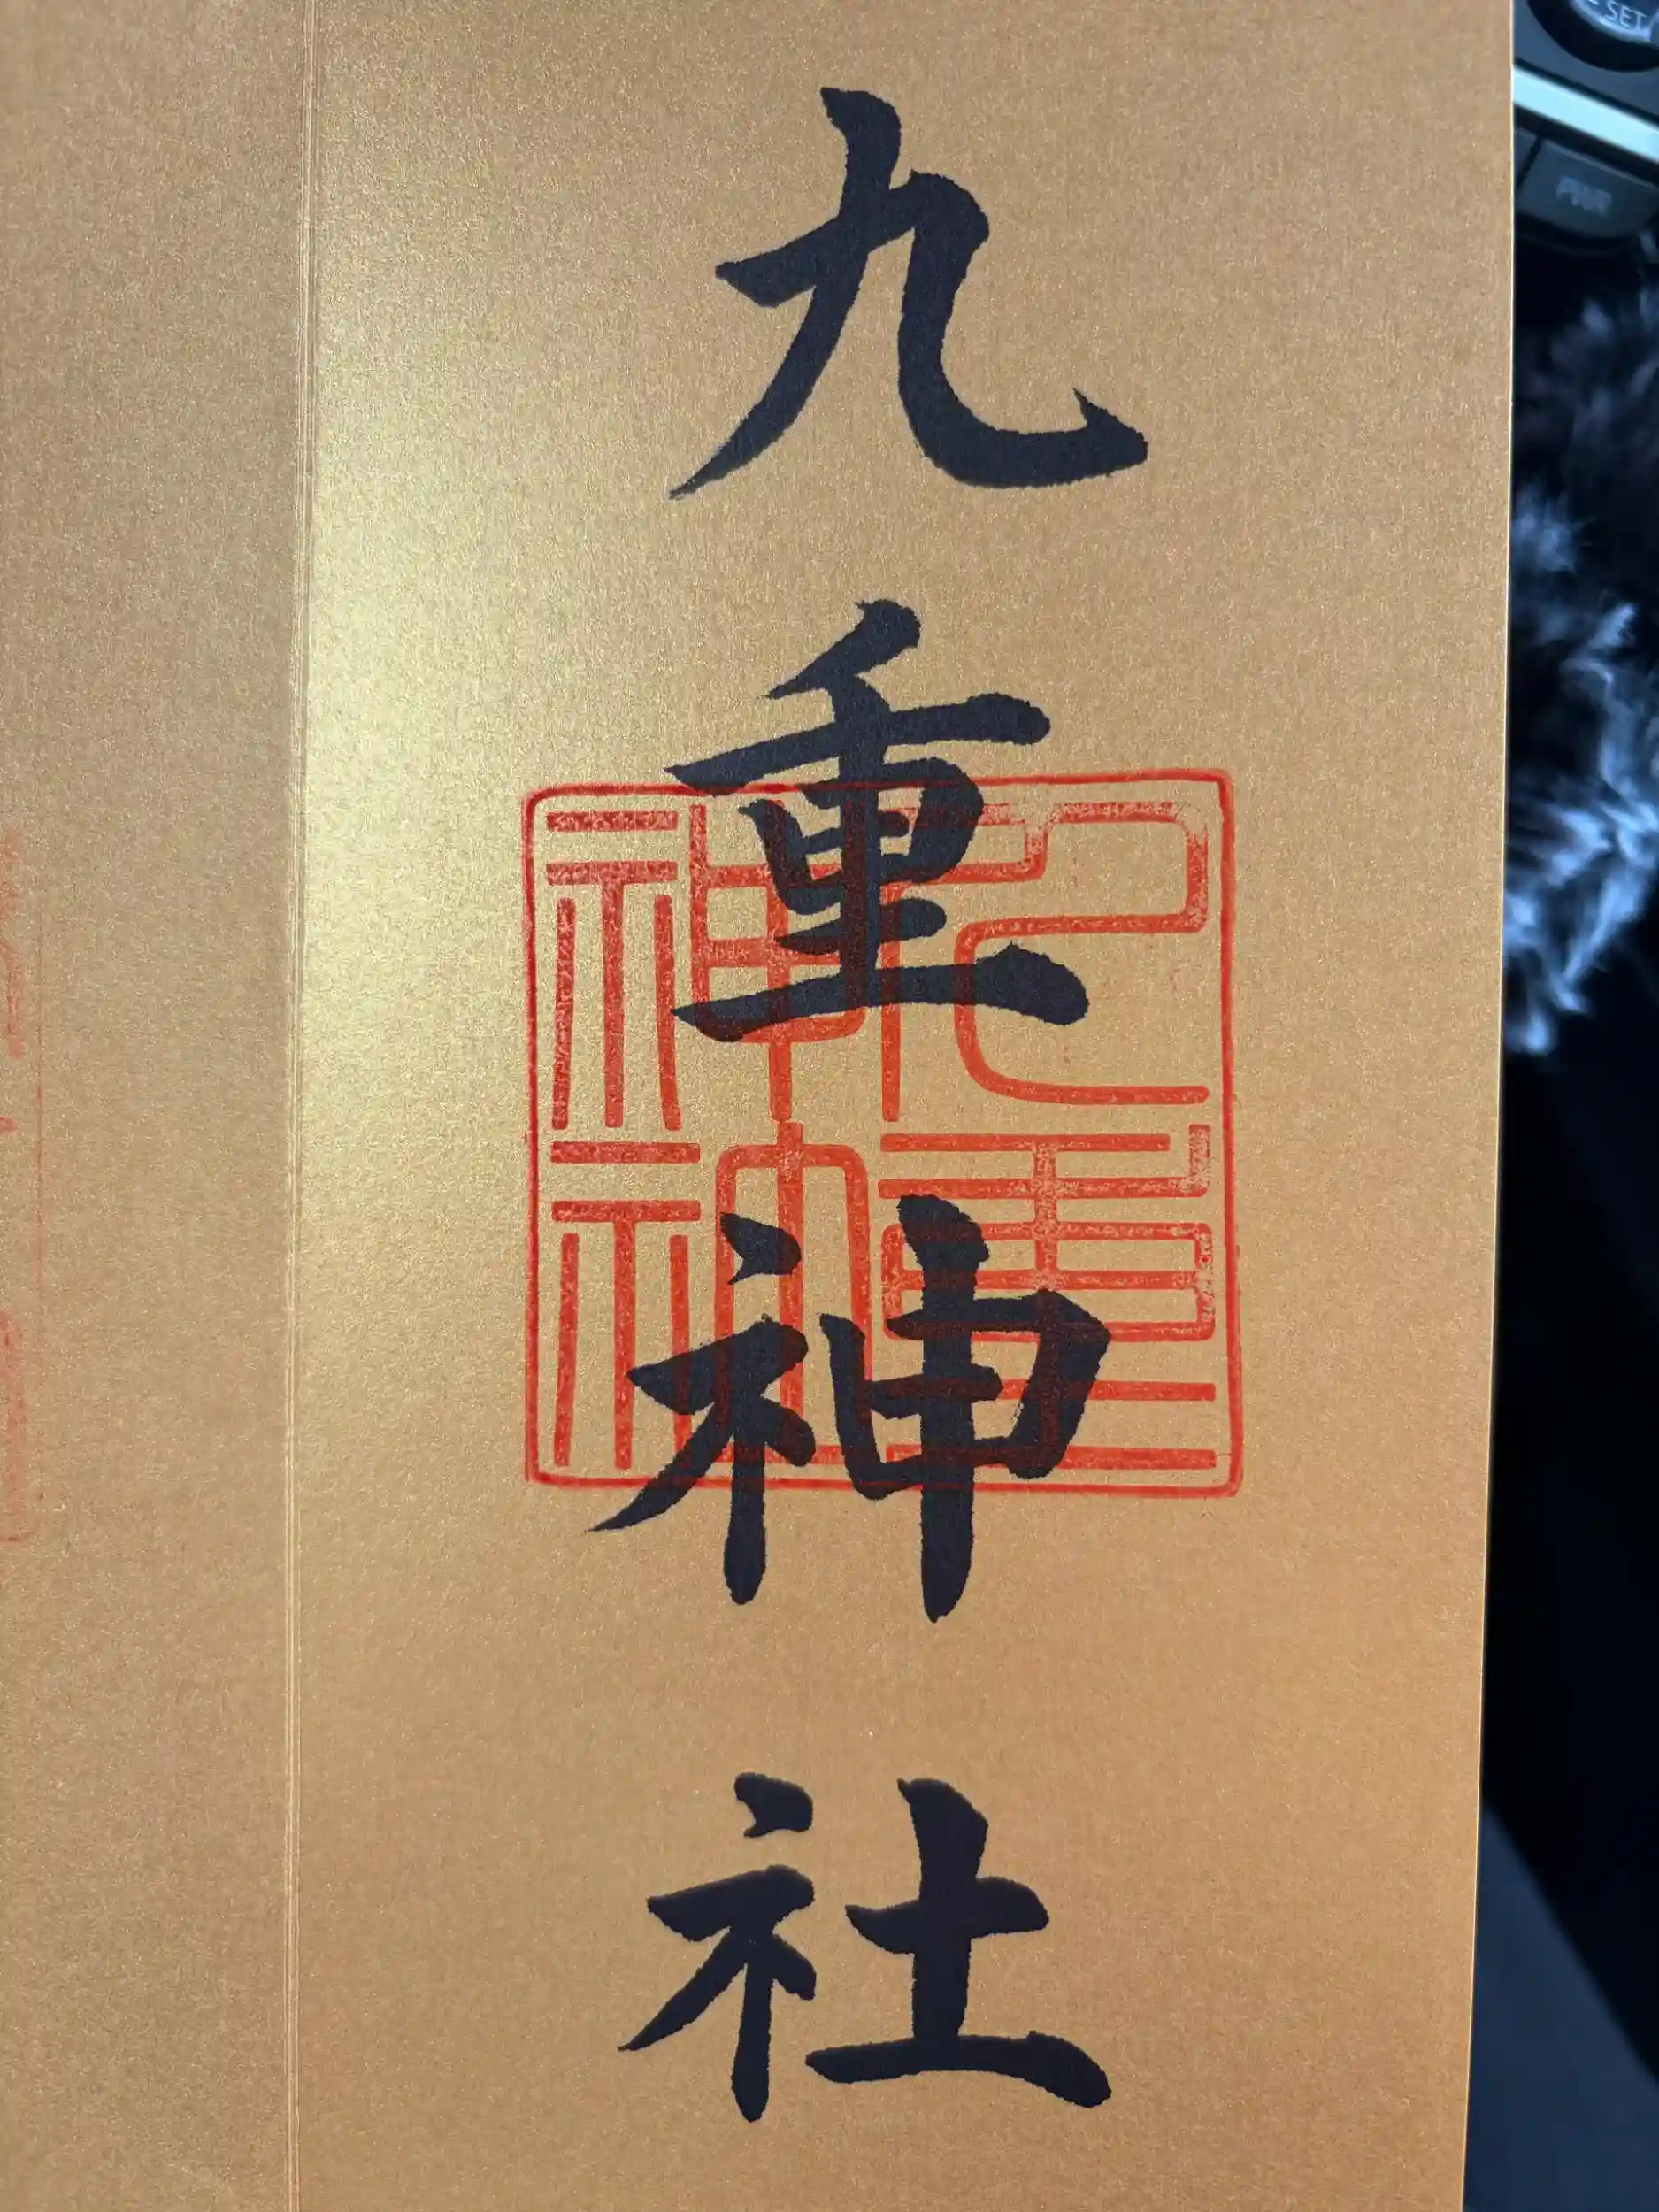 九重神社
九重
神社
SET
PWR